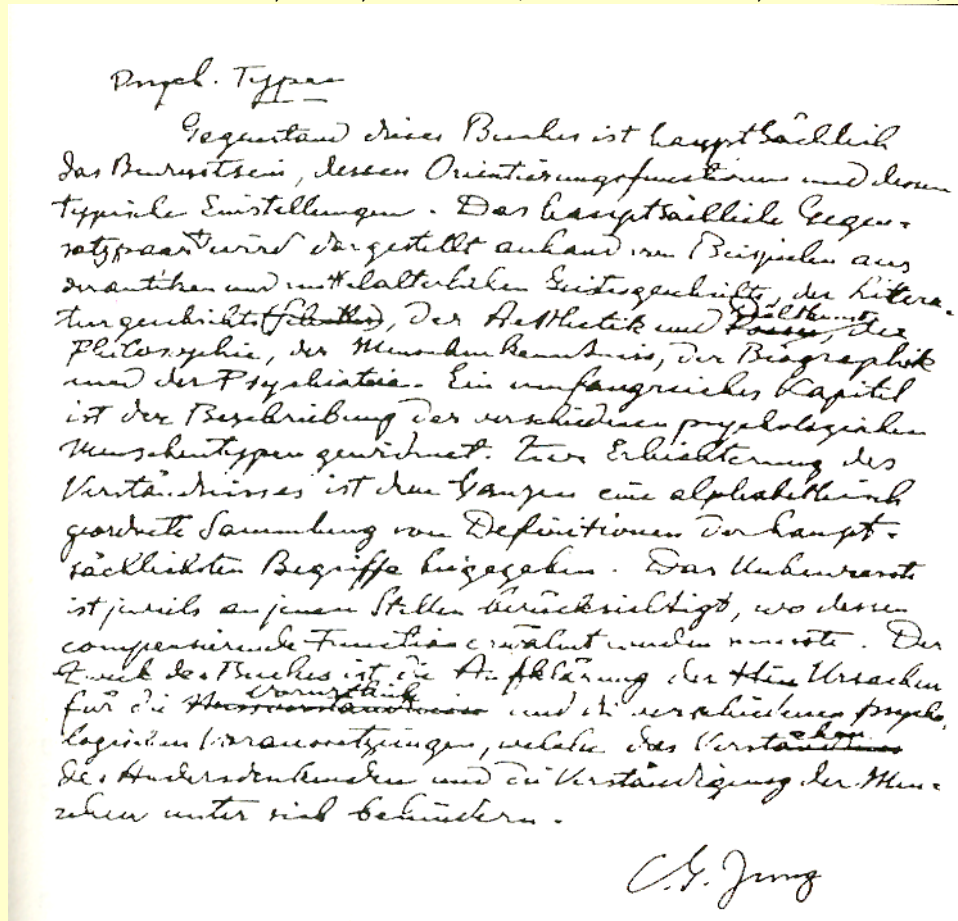 Psych. Typen
Gegenstand dieses Buches ist hauptsächlich
das Bewusstsein, dessen Orientierungsfunctionen und dessen
typische Einstellungen. Das hauptsächliche Gegen-
satzpaar wird dargestellt anhand von Beispielen aus
der antiken und mittelalterlichen Geistesgeschichte, der Littera-
turgeschichte, der Aesthetik und Dichtkunst, der
Philosophie, der Menschenkenntniss, der Biographik
und der Psychiatrie. Ein umfangreiches Kapitel
ist der Beschreibung der verschiedenen psychologischen
Menschentypen gewidmet. Zur Erleichterung des
Verständnisses ist dem Ganzen eine alphabethisch
geordnete Sammlung von Definitionen der haupt-
sächlichsten Begriffe beigegeben. Das Unbewusste
ist jeweils an jenen Stellen berücksichtigt, wo dessen
compensierende Function erwähnt werden musste. Der
Zweck des Buches ist die Aufklärung der Ursachen
für die Vorurtheile und die verschiedenen psycho-
logischen Voraussetzungen, welche das Verstehen
des Andersdenkenden und die Verständigung der Men-
schen unter sich behindern.
C. G. Jung